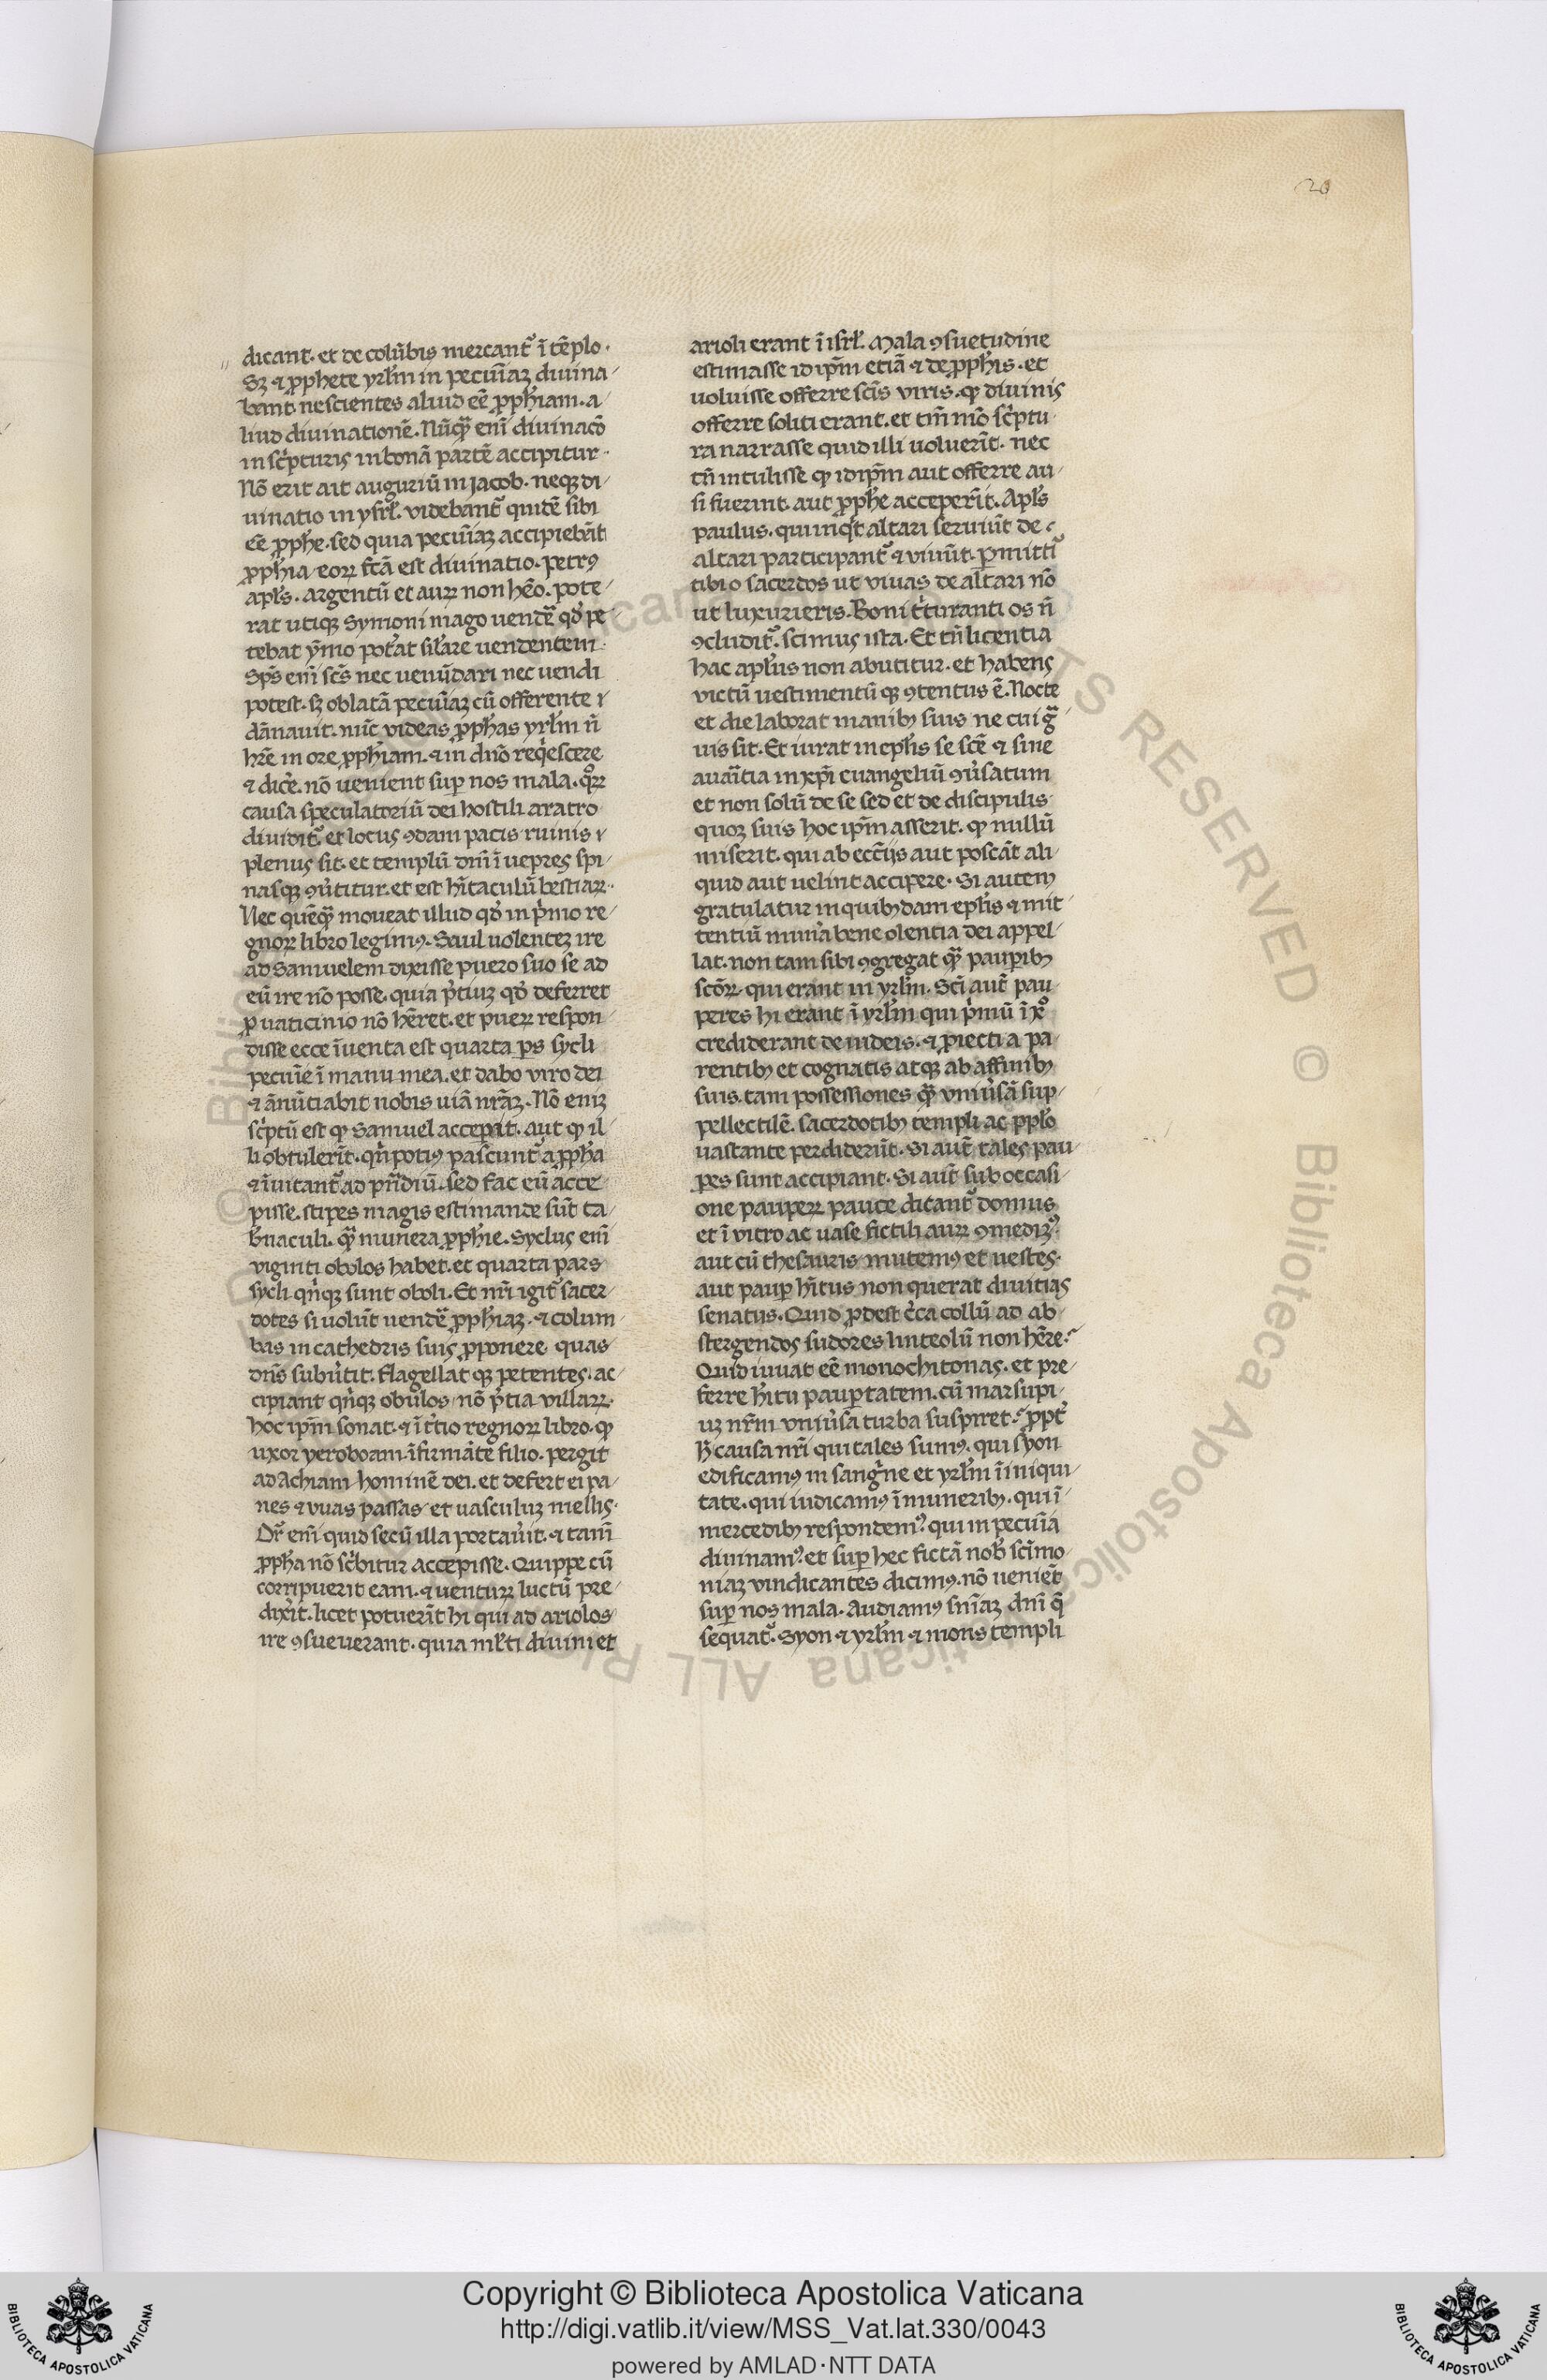 20
dicant. et de colūbis mercant᷑ ī tēplo.
Sꝫ ⁊ ꝓphete yrłm in pecuīaꝫ diuina
bant. nescientes aliud eē ꝓph̄iam. a
liud diuinationē. Nūqᷓ eni᷑ diuinacō
in sc̓pturis in bonā partē accipitur.
Nō erit ait auguriū in jacob. neqꝫ di
uinatio in ysrł. videbant᷑ quidē sibi
eē ꝓph̄e. sed quia pecuīaꝫ accipiebāt
ꝓph̄ia eoꝝ fcā est diuinatio. petrꝰ
apłs. argentū et auꝝ non hēo. pote
rat utiqꝫ symoni mago uendē qđ pe
tebat ẏmo pot̓at siłare uendentem.
Sp̄s eni᷑ sc̄s nec uenūdari nec uendi
potest. sꝫ oblatā pecuīaꝫ cū offerente
dānauit. nūc videas ꝓph̄as yrłm n̄
hr̄e in ore ꝓph̄iam. ⁊ in dn̄o req̓escere
⁊ dic̓e. nō uenient suꝑ nos mala. qͦꝝ
causa speculatoriū dei hostili aratro
diuidit᷑. et locus ꝯdam pacis ruinis
plenus sit. et templū dn̄i ī uepres spi
nasqꝫ ꝯu̓titur. et est hītaculū bestiaꝝ.
Nec quēqᷓ moueat illud qđ in p̓mo re
gnoꝝ libro legimꝰ. Saul uolenteꝫ ire
ad Samuelem dixisse puero suo se ad
eū ire nō posse. quia p̓tiuꝫ qđ deferret
ꝓ uaticinio nō hēret. et pueꝝ respon
disse ecce īuenta est quarta ꝑs sycli
pecuīe ī manu mea. et dabo viro dei
⁊ ānūtiabit nobis uiā nrāꝫ. Nō enīꝫ
sc̓ptū est ꝙ Samuel accepit. aut ꝙ il
li obtulerīt. qn̓ potiꝰ pascunt᷑ a ꝓph̄a
⁊ īuitant᷑ ad pn̄diū. sed fac eū acce
pisse. stipes magis estimande sūt ta
b̓naculi. qᷓ munera ꝓph̄ie. Syclus enī
viginti obolos habet. et quarta pars
sycli qn̓qꝫ sunt oboli. Et nr̄i igit᷑ sacer
dotes si uolūt uendē ꝓph̄iaꝫ. ⁊ colum
bas in cathedris suis ꝓponere. quas
dn̄s subu̓tit. flagellat qꝫ petentes. ac
cipiant qn̓qꝫ obulos nō p̓tia villaꝝ.
hoc ip̄m sonat. ⁊ ī t̓tio regnoꝝ libro. ꝙ
uxor yeroboam. īfirmāte filio. pergit
ad Achiam hominē dei. et defert ei pa
nes ⁊ vuas passas et uasculuꝫ mellis.
Dr̄ eni᷑ quid secū illa portau̓it. ⁊ tam̄
ꝓph̄a nō sc̓bitur accepisse. Quippe cū
corripuerit eam. ⁊ uentuꝝ luctū pre
dix̓it. licet potuerīt hi qui ad ariolos
ire ꝯsueuerant. quia mlti diuini et
arioli erant ī isrł. Mala ꝯsuetudine
estimasse id ip̄m etiā ⁊ de ꝓph̄is. et
uoluisse offerre scīs viris. ꝙ diuinis
offerre soliti erant. et tm̄ mō sc̓ptu
ra narrasse quid illi uoluerīt. nec
tn̄ intulisse ꝙ id ip̄m aut offerre au
si fuerint. aut ꝓph̄e acceperīt. Apłs
paulus. qui inq̓t altari seruiūt de
altari participant᷑ ⁊ viuūt. ꝑmittī᷑
tibi o sacerdos ut viuas de altari nō
ut luxurieris. Boui t̓turanti os n̄
ꝯcludit᷑. scimus ista. Et tn̄ licentia
hac apłus non abutitur. et habens
victū uestimentū qꝫ ꝯtentus ē. Nocte
et die laborat manibꝫ suis ne cui gᷓ
uis sit. Et iurat in epłis se scē ⁊ sine
auar̄tia in xp̄i euangeliū ꝯu̓satum
et non solū de se sed et de discipulis
quoꝫ suis hoc ip̄m asserit. ꝙ nullū
miserit. qui ab ecc̄ijs aut poscāt ali
quid aut uelint accipere. Si autem
gratulatur in quibꝫdam epłis ⁊ mit
tentiū mun̓a bene olentia dei appel
lat. non tam sibi ꝯgregat qᷓ pauꝑibꝫ
scōꝝ. qui erant in yrłm. Scī aut̄ pau
peres hi erant ī yrłm qui p̓mū ī xͦ
crediderant de iudeis. ⁊ ꝓiecti a pa
rentibꝫ et cognatis atqꝫ ab affinibꝫ
suis. tam possessiones qᷓ vniu̓sā sup
pellectilē. sacerdotibꝫ templi ac ppło
uastante perdiderūt. Si aut̄ tales pau
ꝑes sunt accipiant. Si aut̄ sub occasi
one paupeꝝ pauce dicant᷑ domus
et ī vitro ac uase fictili auꝝ ꝯmedīꝰ
aut cū thesauris mutemꝰ et uestes.
aut pauꝑ hītus non querat diuitias
senatus. Quid ꝓdest c̓ca collū ad ab
stergendos sudores linteolū non hēre.
Quid iuuat eē monochitonas. et pre
ferre hītu pauꝑtatem. cū marsupi
uꝫ nr̄m vniu̓sa turba suspiret. ꝓpt̓
h̄ causa nr̄i qui tales sumꝰ. qui syon
edificamꝰ in sang̓ne et yrłm ī iniqui
tate. qui iudicamꝰ ī muneribꝫ. qui ī
mercedibꝫ respondemꝰ. qui in pecuīa
diuinamꝰ. et suꝑ hec fictā nob̄ scīmo
niaꝫ vindicantes dicimꝰ. nō ueniēt
suꝑ nos mala. Audiamꝰ snīaꝫ dn̄i q̄
sequat᷑. Syon ⁊ yrłm ⁊ mons templi
Copyright © Biblioteca Apostolica Vaticana
http://digi.vatlib.it/view/MSS_Vat.lat.330/0043
powered by AMLAD·NTT DATA
BIBLIOTECA APOSTOLICA VATICANA
BIBLIOTECA APOSTOLICA VATICANA